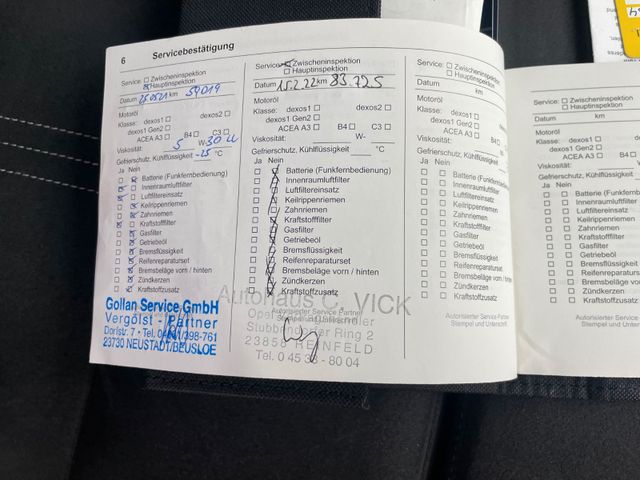 6 Servicebestätigung
Service: Zwischeninspektion
Hauptinspektion
Datum 25.05.21 km 54019
Motoröl
Klasse: dexos1 dexos2
dexos1 Gen2
ACEA A3 B4 C3
Viskosität: 5 W- 30
Gefrierschutz, Kühlflüssigkeit -25 °C
Ja Nein
Batterie (Funkfernbedienung)
Innenraumluftfilter
Luftfiltereinsatz
Keilrippenriemen
Zahnriemen
Kraftstofffilter
Gasfilter
Getriebeöl
Bremsflüssigkeit
Reifenreparaturset
Bremsbeläge vorn / hinten
Zündkerzen
Kraftstoffzusatz
Gollan Service GmbH
Vergölst - Partner
Dorfstr. 7 - Tel.
23730 NEUSTADT/BEUSLOE
Service: Zwischeninspektion
Hauptinspektion
Datum 15.2.22 km 83.725
Motoröl
Klasse: dexos1 dexos2
dexos1 Gen2
ACEA A3 B4 C3
Viskosität: W-
Gefrierschutz, Kühlflüssigkeit °C
Ja Nein
Batterie (Funkfernbedienung)
Innenraumluftfilter
Luftfiltereinsatz
Keilrippenriemen
Zahnriemen
Kraftstofffilter
Gasfilter
Getriebeöl
Bremsflüssigkeit
Reifenreparaturset
Bremsbeläge vorn / hinten
Zündkerzen
Kraftstoffzusatz
Autohaus C. VICK
Autorisierter Service-Partner
Opel
Ring 2
23858 REINFELD
Tel. 0 45 33 - 80 04
Service: Zwischeninspektion
Hauptinspektion
Datum km
Motoröl
Klasse: dexos1
dexos1 Gen2
ACEA A3 B4
Viskosität: W-
Gefrierschutz, Kühlflüssigkeit
Ja Nein
Batterie (Funkfernbedienung)
Innenraumluftfilter
Luftfiltereinsatz
Keilrippenriemen
Zahnriemen
Kraftstofffilter
Gasfilter
Getriebeöl
Bremsflüssigkeit
Reifenreparaturset
Bremsbeläge vorn / hinten
Zündkerzen
Kraftstoffzusatz
Autorisierter Service-Partner
Stempel und Unterschrift
Service: Zwischeninspektion
Hauptinspektion
Datum km
Motoröl
Klasse: dexos1
dexos1 Gen2
ACEA A3
Viskosität:
Gefrierschutz, Kühlflüssigkeit
Ja Nein
Batterie
Innenraumluftfilter
Luftfiltereinsatz
Keilrippenriemen
Zahnriemen
Kraftstofffilter
Gasfilter
Getriebeöl
Bremsflüssigkeit
Reifenreparaturset
Bremsbeläge vorn
Zündkerzen
Kraftstoffzusatz
Autorisierter Service-Partner
Stempel und Unterschrift